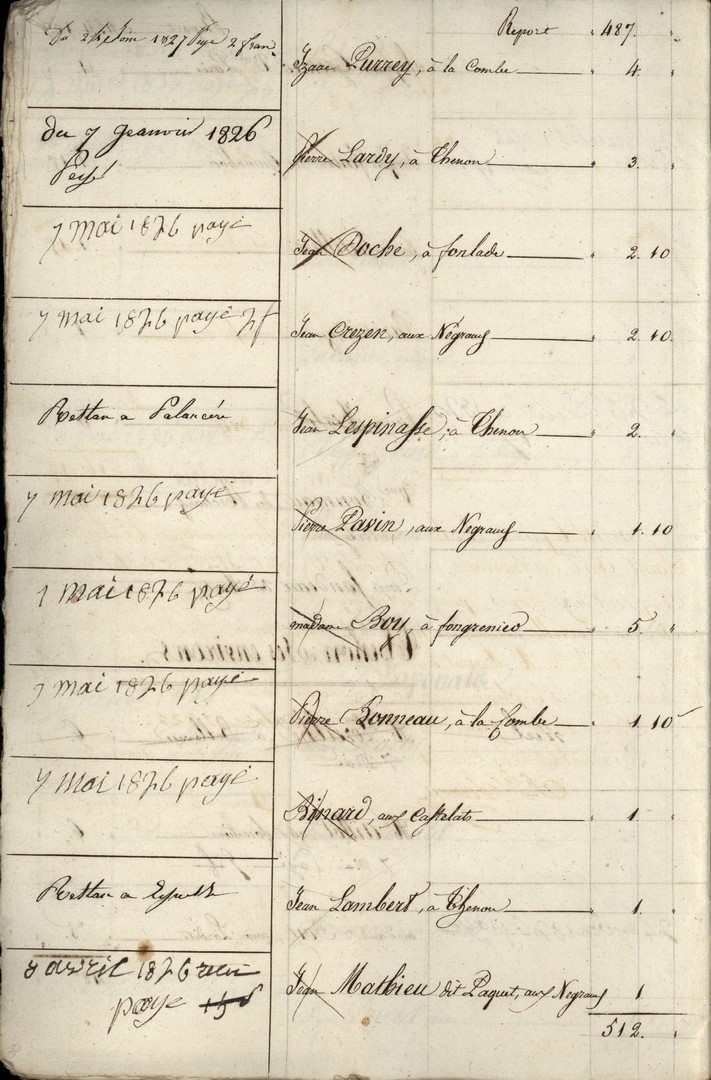 Report " 487. "
Du 24 Juin 1827 Paye 2 fran
Izaac Purrey, à la Combe " 4. "
du 7 Jeanvier 1826
Peyé
Pierre Lardy, à Thenon " 3. "
7 mai 1826 payé
Jean Doche, à fonlade " 2. 10
7 mai 1826 payé 2f
Jean Crezen, aux Négrauds " 2. 10
Restan a Palancére
Jean Lespinasse, à Thenon " 2. "
7 mai 1826 payé
Pierre Pavin, aux Negrauds " 1. 10
7 mai 1826 payé
madame Boy, à fongrenied " 5. "
7 mai 1826 payé
Pierre Bonneau, à la Combe " 1. 10
7 mai 1826 payé
Binard, aux Castelats " 1. "
Restan a
Jean Lambert, à Thenon " 1. "
8 avril 1826
paye
Jean Mathieu dit Paquet, aux Negrauds 1 "
512. "